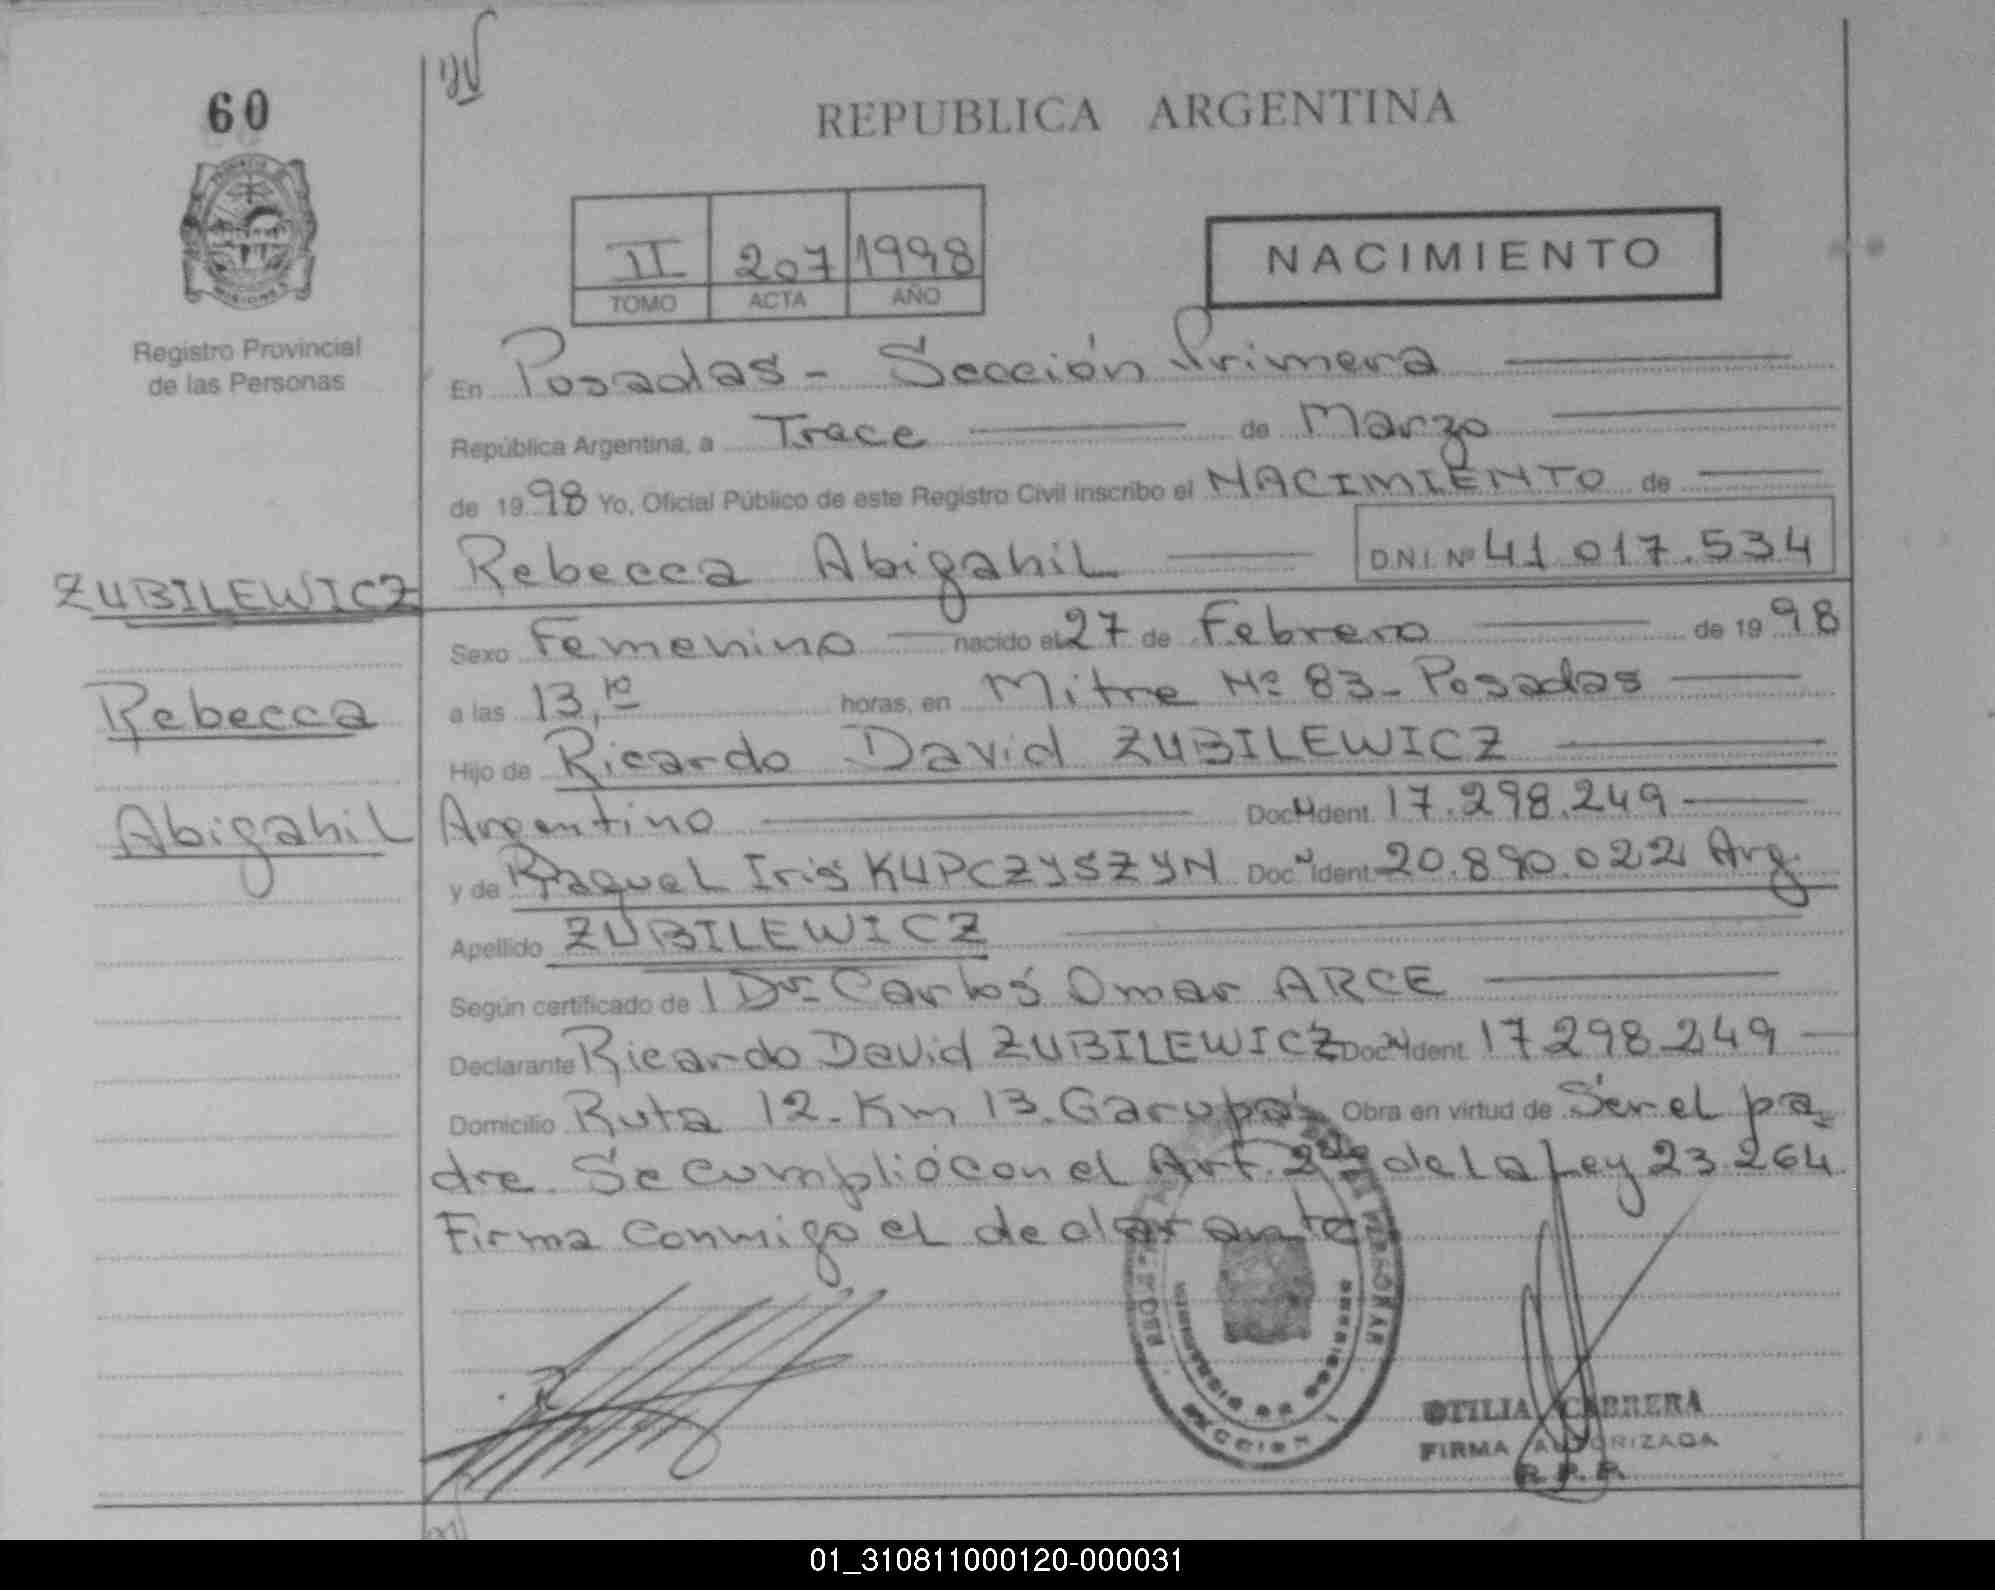 60
REPUBLICA ARGENTINA
II 207 1998
TOMO ACTA AÑO
NACIMIENTO
MISIONES
Registro Provincial
de las Personas
En Posadas - Sección Primera
República Argentina, a Trece de Marzo
de 1998 Yo, Oficial Público de este Registro Civil inscribo el NACIMIENTO de
Rebecca Abigahil D.N.I. Nº 41.017.534
ZUBILEWICZ
Rebecca
Abigahil
Sexo Femenino nacido el 27 de Febrero de 1998
a las 13,10 horas, en Mitre Nº 83 - Posadas
Hijo de Ricardo David ZUBILEWICZ
Argentino Doc. N Ident. 17.298.249
y de Raquel Iris KUPCZYSZYN Doc. N Ident. 20.890.022 Arg.
Apellido ZUBILEWICZ
Según certificado de Dr. Carlos Omar ARCE
Declarante Ricardo David ZUBILEWICZ Doc. N Ident. 17.298.249
Domicilio Ruta 12 - Km 13. Garupá. Obra en virtud de Ser el pa=
dre. Se cumplió con el Art. 2do de la Ley 23.264
Firma conmigo el declarante
SECCION 1
OTILIA CABRERA
FIRMA AUTORIZADA
R. P. P.
01_310811000120-000031